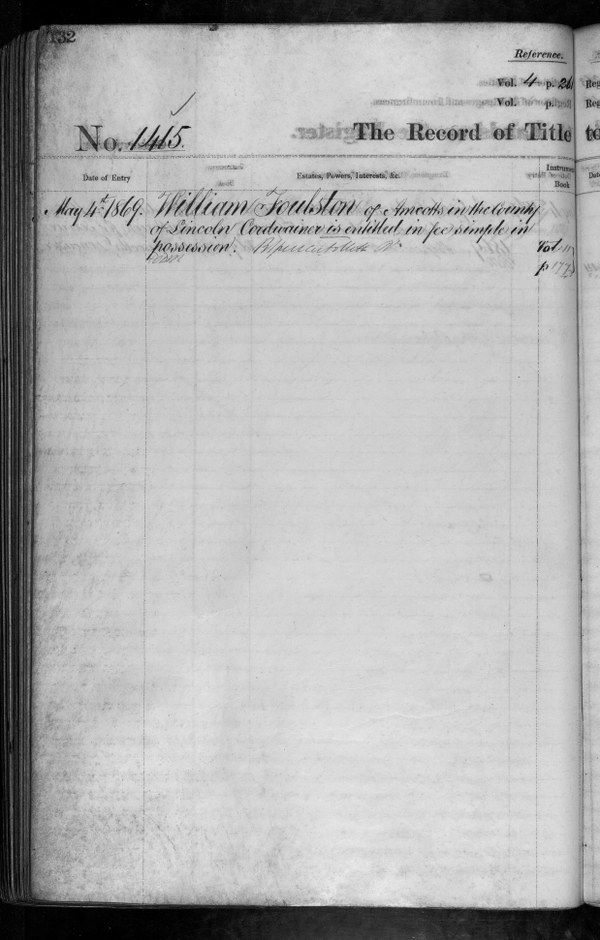 132
Reference.
Vol. 4 p. 261
Vol. p.
No. 1415.
The Record of Title to
Date of Entry
Estates, Powers, Interests, &c.
Instrument Book
May 4th 1869.
William Foulston of Amcotts in the County
of Lincoln Cordwainer is entitled in fee simple in
possession.
Vol
p 177
Reg
Reg
Dat